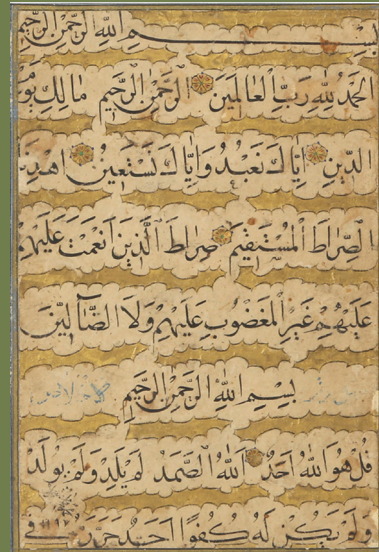 بِسْمِ اللهِ الرَّحْمٰنِ الرَّحِيْمِ
الحَمْدُ لِلّٰهِ رَبِّ العَالَمِينَ الرَّحْمٰنِ الرَّحِيْمِ مَالِكِ يَوْمِ
الدِّيْنِ اِيَّاكَ نَعْبُدُ وَاِيَّاكَ نَسْتَعِيْنُ اهْدِنَا
الصِّرَاطَ المُسْتَقِيْمَ صِرَاطَ الَّذِيْنَ اَنْعَمْتَ عَلَيْهِمْ
عَلَيْهِمْ غَيْرِ المَغْضُوبِ عَلَيْهِمْ وَلَا الضَّآلِّيْنَ
بِسْمِ اللهِ الرَّحْمٰنِ الرَّحِيْمِ
قُلْ هُوَ اللهُ اَحَدٌ اَللهُ الصَّمَدُ لَمْ يَلِدْ وَلَمْ يُولَدْ
وَلَمْ يَكُنْ لَهُ كُفُوًا اَحَدٌ في